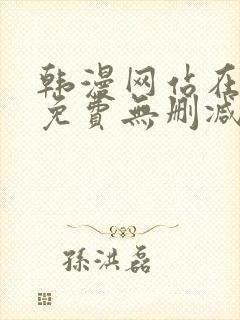 韩漫网站在
免費無删减
孫洪磊